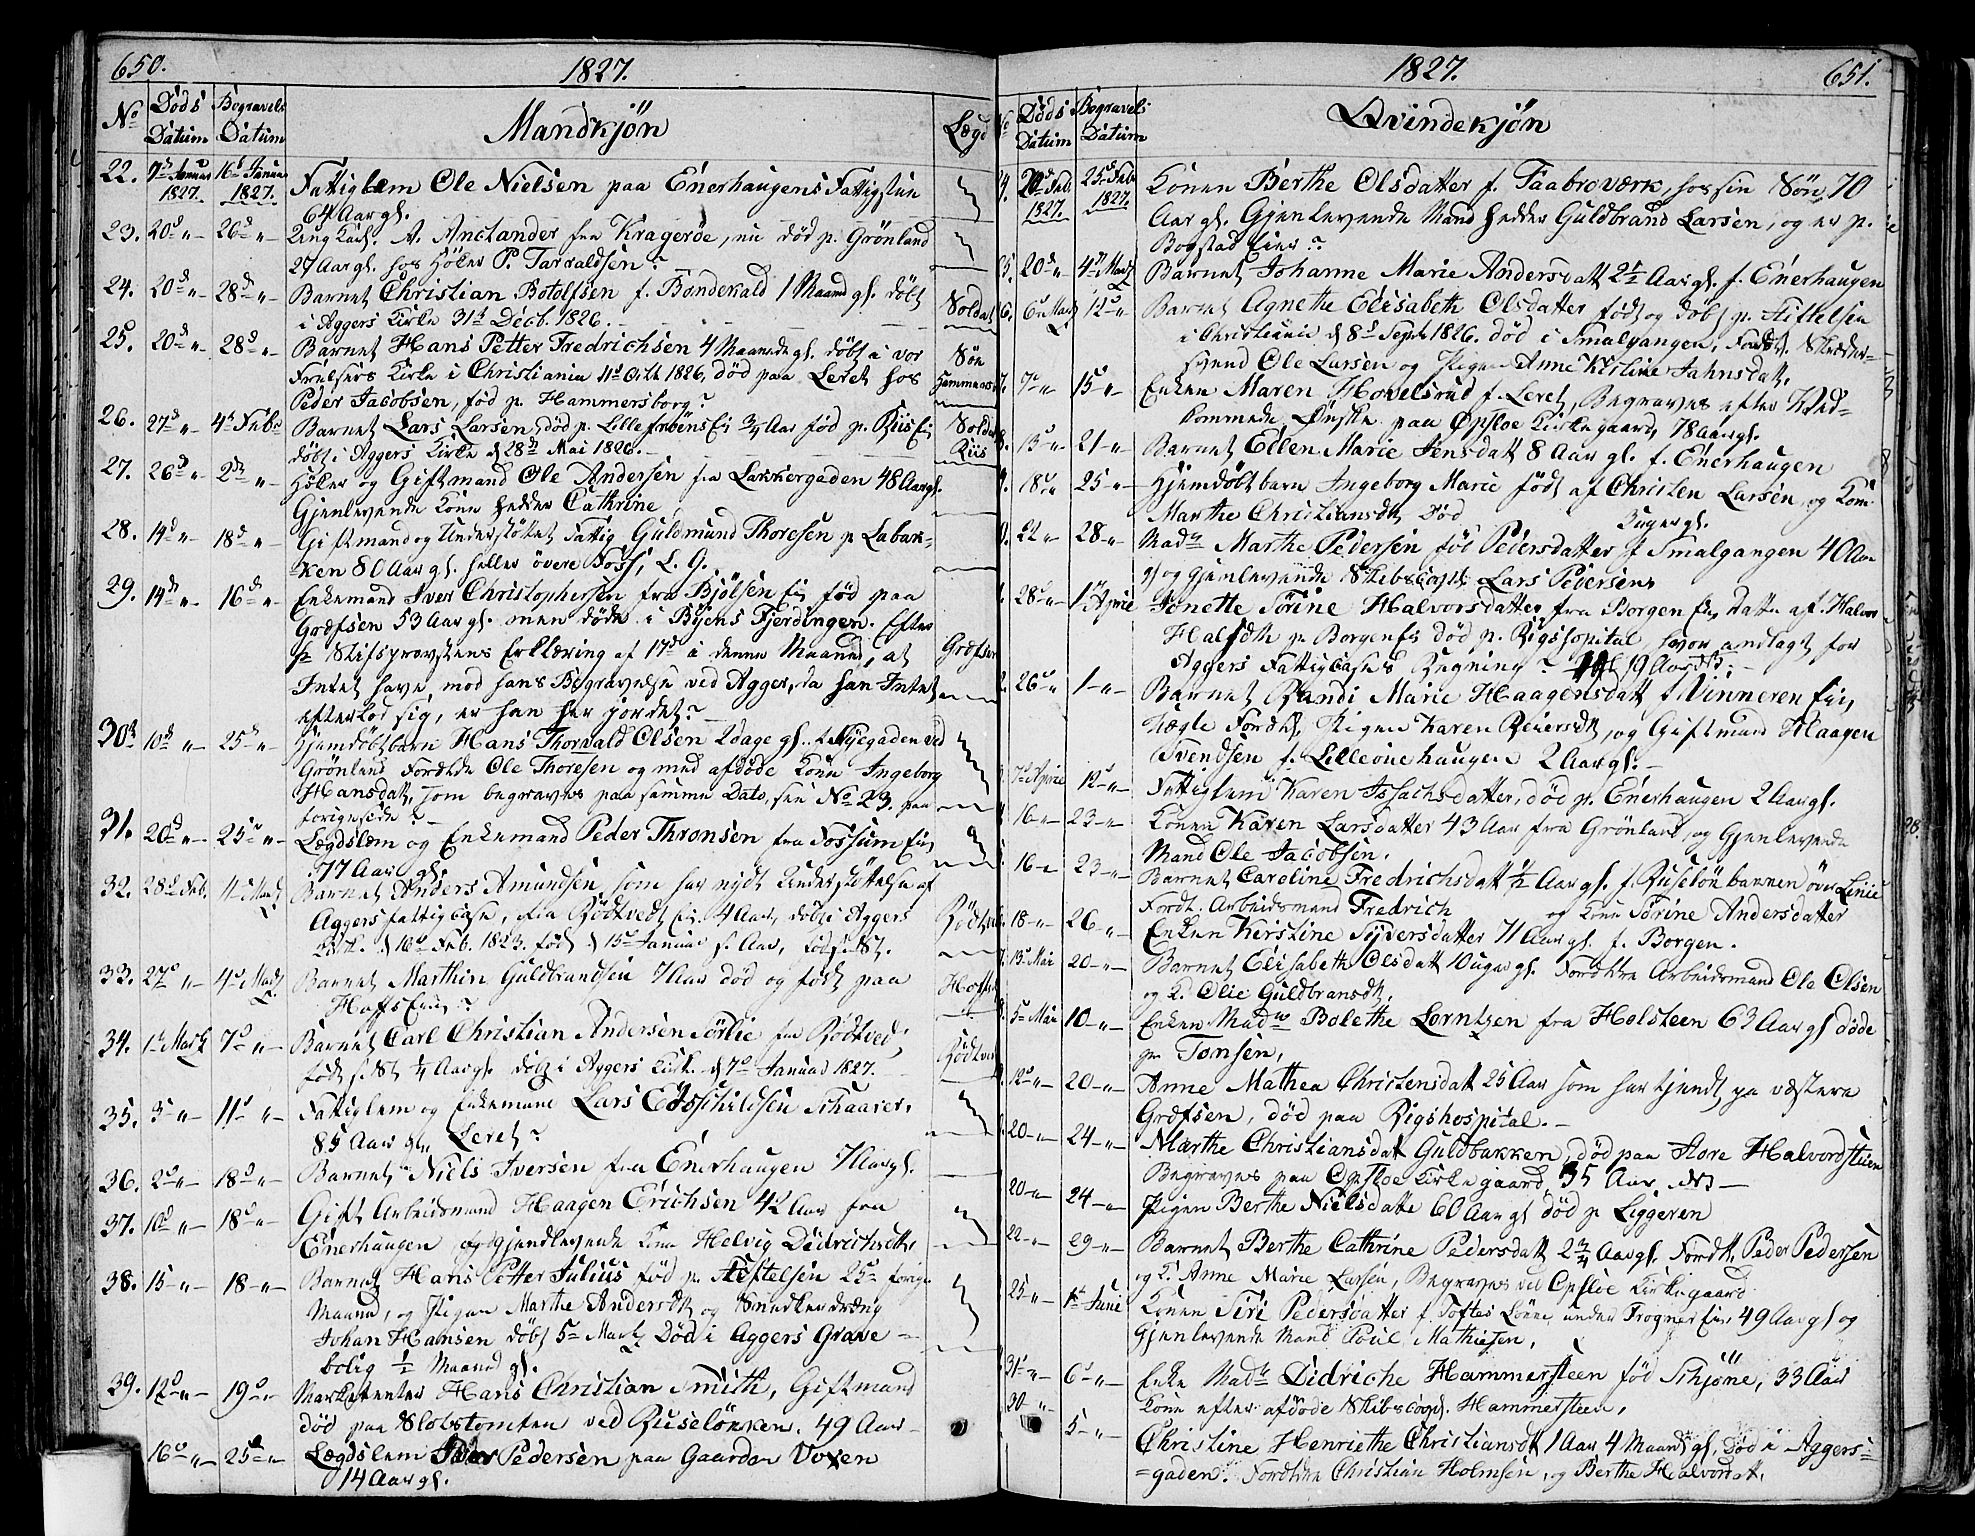 650.
1827.
No Döds Datum Begravels Datum
Mandkjön
Lægd
22. 7d Januar 1827. 16d Januar 1827. Fattiglem Ole Nielsen paa Enerhaugens Fattigstue
64 Aar gl.
23. 20d " 26d " Ung Karl. A. Anclander fra Krageröe, nu död p. Grönland
27 Aar gl. hos Höker P. Tarraldsen?
24. 20d " 28d " Barnet Christian Botolfsen f. Bondekald 1 Maand gl. döbt Soldat
i Aggers Kirke 31d Decb. 1826.
25. 20d " 28d " Barnet Hans Petter Fredrichsen 4 Maaneder gl. döbt i vor Sön
Frelsers Kirke i Christiania 1826, död paa Leret hos
Peder Jacobsen, fød p. Hammersborg?
26. 27d " 4d Feb. Barnet Lars Larsen, död p. Lille 3/4 Aar fød p. Riis Ei, Soldat
döbt i Aggers Kirke d 28d Mai 1826. Riis
27. 26d " 2d " Höker og Giftmand Ole Andersen fra Lakkergaden 48 Aar gl.
Gjenlevende Kone hedder Cathrine
28. 14d " 18d " Giftmand og Understöttet Fattig Guldmund Thoresen p. Labak-
ken 80 Aar gl. heller övere Foss, L. G.
29. 14d " 16d " Enkemand Iver Christophersen fra Bjölsen Ei, fød paa
Grefsen 53 Aar gl. men döde i Byens Fjerdingen. Efter
Hr Stifsprovstens Erklæring af 17d i denne Maaned, at Grefsen
Intet have mod hans Begravelse ved Agger, da han Intet
efterlod sig, er han her jordet?
30d 10d " 25d " Hjemdöbt barn Hans Thorvald Olsen 2 dage gl. Nyegaden ved
Grönland Forældre Ole Thoresen og med afdöde Kone Ingeborg
Hansdat, som begraves paa samme Dato, see No 23. paa
forige side?
31. 20d " 25d " Lægdslem og Enkemand Peder Thronsen fra Fossum Ei,
77 Aar gl.
32. 28d Feb. 4d Marts Barnet Anders Amundsen som har nydt Understöttelse af
Aggers fattigcasse, fra Rödtvedt Ei. 4 Aar, döbt i Aggers Rödtvedt
Kirke d 16d Feb. 1823. fød d 15d Januar s. Aar,
33. 27d " 4d Marts Barnet Marthin Guldbrandsen 7 Aar död og født paa
Hoffs Eier?
34. 1d Marts 7d " Barnet Carl Christian Andersen Sörlie fra Rödtvedt,
født 1/4 Aar gl. döbt i Aggers Kirk. d 7d Januar 1827.
35. 5d " 11d " Fattiglem og Enkemand Lars Edsschildsen Schaarer,
85 Aar gl. Leret?
36. 2d " 18d " Barnet Niels Iversen fra Enerhaugen 7 Aar gl.
37. 10d " 18d " Gift Arbeidsmand Haagen Erichsen 42 Aar fra
Enerhaugen, og gjenlevende Kone Helvig Didrichsdt,
38. 15 " 18 " Barnet Hans Petter Julius fød p. Stiftelsen 25d forige
Maaned, og Pigen Marthe Andersdt og Snedkerdræng
Johan Hansen döbt 5d Marts Död i Aggers Grave-
bolig 1/2 Maaned gl.
39. 12d " 19d " Marketenter Hans Christian Smith, Giftmand
död paa Slotstomten ved Ruselökken. 49 Aar
16d " 25d " Lægdslem Peder Pedersen paa Gaarden Voxen
14 Aar gl.
1827.
651.
Döds Datum Begravels Datum
Qvindekjön
20d Feb. 1827. 25d Feb 1827. Konen Berthe Olsdatter f. Taabroværk, hos sin Søn, 70
Aar gl. Gjenlevende Mand hedder Guldbrand Larsen, og er p.
Bogstad Eier?
20d " 4d Marts Barnet Johanne Marie Andersdatt 2 1/2 Aar gl. f. Enerhaugen
6d Marts 12d " Barnet Agnethe Elisabeth Olsdatter født og döbt p. Stiftelsen
i Christiania d 8d Septb 1826. död i Smalgangen, Forældr. Skrædder-
svend Ole Larsen og Pigen Anne Kirstine Jahnsdatt.
7d " 15d " Enken Maren Hovelsrud f. Leret, Begraves efter Ved-
kommende Önske paa Opsloe Kirkegaard, 78 Aar gl.
13d " 21 " Barnet Ellen Marie Jensdatt 8 Aar gl. f. Enerhaugen
18d " 25 " Hjemdöbt barn Ingeborg Marie født af Christen Larsen, og Kone
Marthe Christiansdt Død Uger gl.
22 " 28 " Mad. Marthe Pedersen fød Pedersdatter f. Smalgangen 40 Aar
gl og gjenlevende Skibscapt. Lars Pedersen,
28d " 1d April Jonette Sörine Halvorsdatter fra Borgen Ei, Datter af Halvor
Halsdth p. Borgen Ei, död p. Rigshospital hvor indlagt for
Aggers Fattigcasses Regning? 19 Aar
26d " 1 " Barnet Randi Marie Haagensdatt f. Vinneren Ei,
Uægte Foræld, Pigen Karen Reiersdt, og Giftmand Haagen
Svendsen f. Lilleonehaugen 2 Aar gl.
7d April 12d " Fattiglem Karen Issachsdatter, död p. Enerhaugen 2 Aar gl.
16 " 23 " Konen Karen Larsdatter 43 Aar fra Grönland, og Gjenlevende
Mand Ole Jacobsen.
16 " 23 " Barnet Caroline Fredrichsdatt 1/2 Aar gl. f. Ruselöebannen över Linie
Forældr. Arbeidsmand Fredrich og Kone Sörine Andersdatter
18 " 26 " Enken Kirstine Sydersdatter 71 Aar gl. f. Borgen.
13d Mai 20 " Barnet Elisabeth Olsdatt 10 uger gl. Forældre Arbeidsmand Ole Olsen
og K. Olie Guldbransdt.
5d Mai 10 " Enken Madm Bolethe Lorntzen fra Holsteen 63 Aar gl døde
p. Tonsen,
12d " 20 " Anne Mathea Christensdatt 25 Aar som har tjendt pa væstere
Grefsen, død paa Rigshospital.
20 " 24 " Marthe Christiansdat Guldbakken, död paa Store Halvordsteen
Begraves paa Opsloe Kirkegaard, 35 Aar
20 " 24 " Pigen Berthe Nielsdatter 60 Aar gl död p. Liggeren
22 " 29 " Barnet Berthe Cathrine Pedersdatt 2 3/4 Aar gl. Forældr. Peder Pedersen
og K. Anne Marie Larsen, Begraves ved Opsloe Kirkegaard
25 " 1d Juni Konen Siri Pedersdatter f. Toftes Lönne under Frogner Eier 49 Aar gl og
Gjenlevende Mand Poul Mathiesen,
31d " 6d " Enke Mad. Didriche Hammersteen fød Schjöne, 33 Aar
Kone efter afdöde Skibscapt. Hammersteen,
30 " 5 " Christine Henriethe Christiansdt 1 Aar 4 Maand gl, död i Aggers-
gaden. Forældre Christian Holmsen, og Berthe Halvorsdatt,